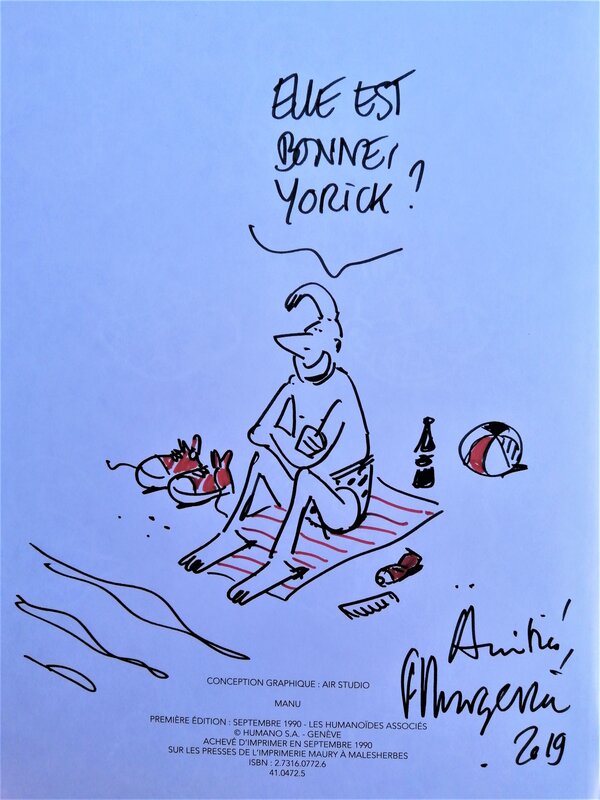 ELLE EST
BONNE,
YORICK ?
Amitiés,
F Margerin
2019
CONCEPTION GRAPHIQUE : AIR STUDIO
MANU
PREMIÈRE ÉDITION : SEPTEMBRE 1990 - LES HUMANOÏDES ASSOCIÉS
© HUMANO S.A. - GENÈVE
ACHEVÉ D'IMPRIMER EN SEPTEMBRE 1990
SUR LES PRESSES DE L'IMPRIMERIE MAURY À MALESHERBES
ISBN : 2.7316.0772.6
41.0472.5